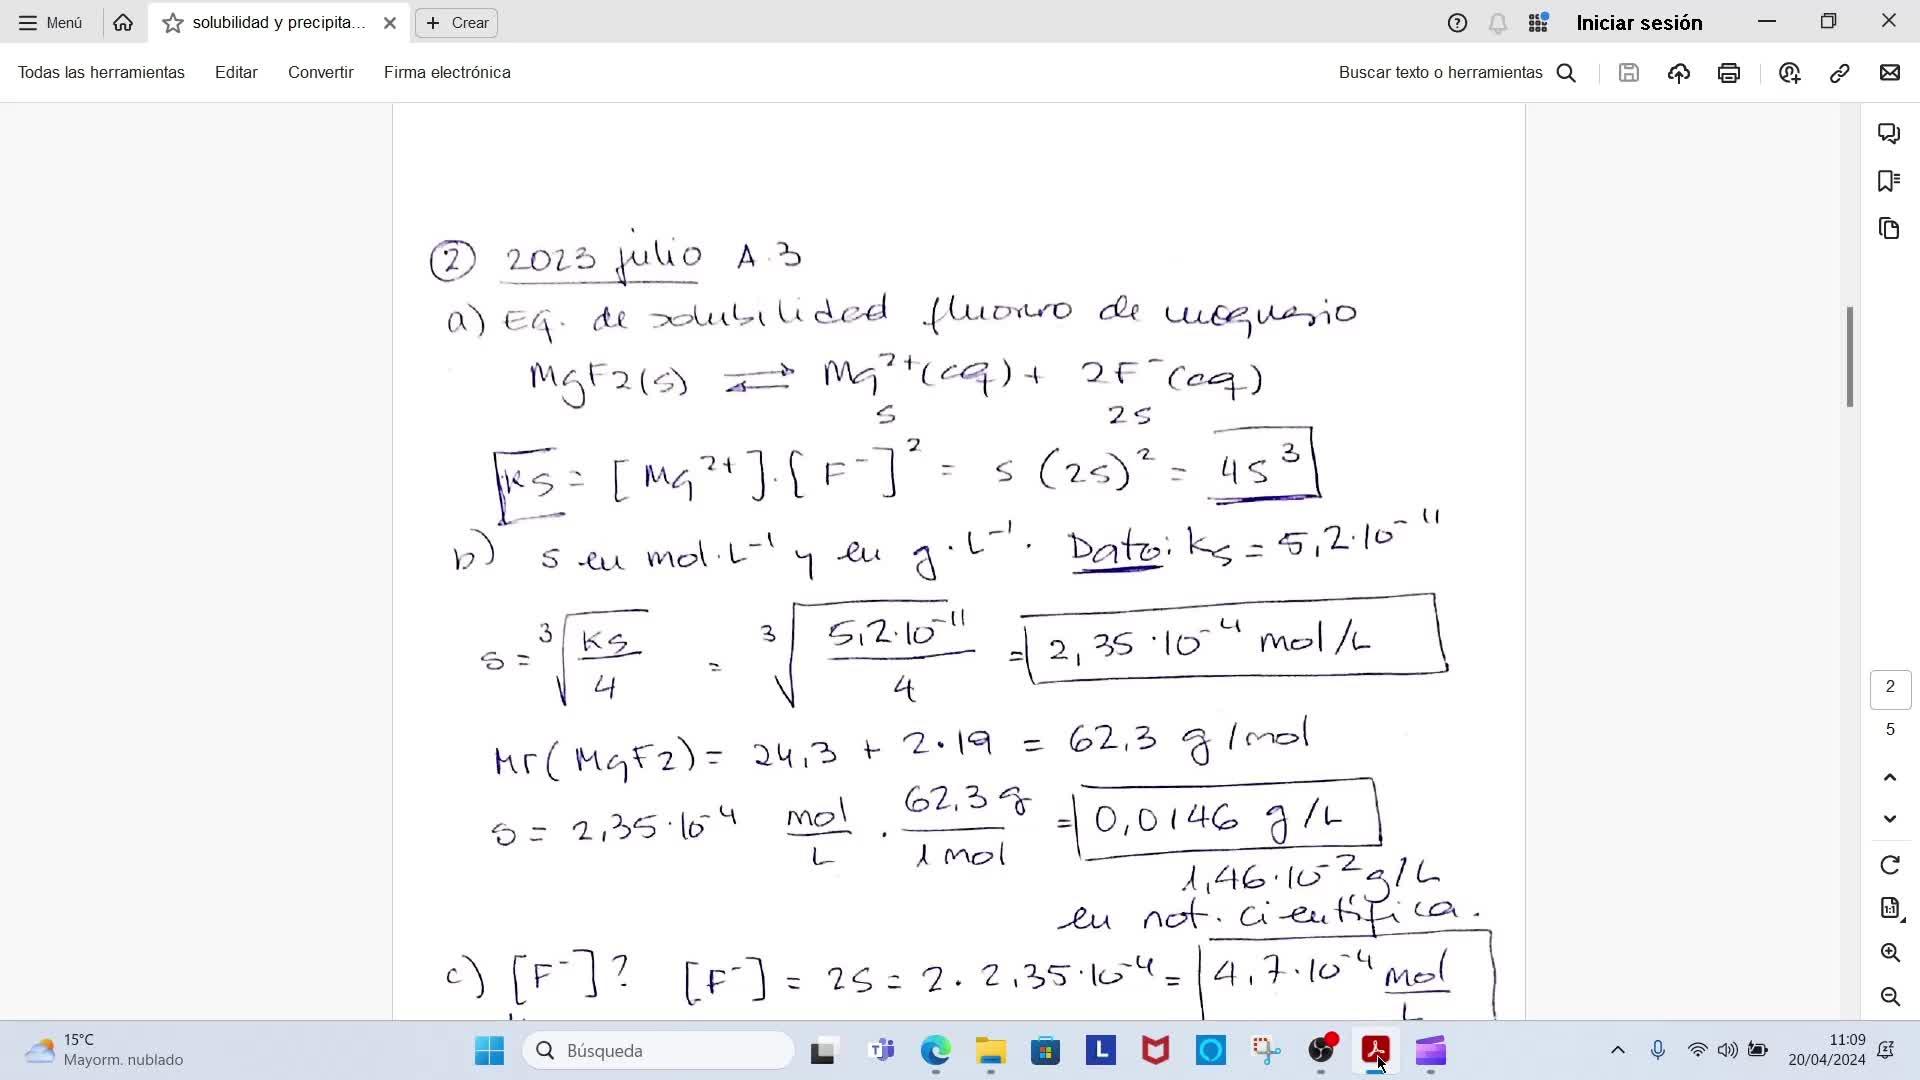 Menú
solubilidad y precipita...
Crear
Iniciar sesión
Todas las herramientas
Editar
Convertir
Firma electrónica
Buscar texto o herramientas
② 2023 julio A.3
a) Eq. de solubilidad fluoruro de magnesio
MgF2(s) ⇌ Mg²⁺(aq) + 2F⁻(aq)
s 2s
Ks = [Mg²⁺]·[F⁻]² = s (2s)² = 4s³
b) s en mol·L⁻¹ y en g·L⁻¹. Dato: Ks = 5,2·10⁻¹¹
s = ³√(Ks/4) = ³√(5,2·10⁻¹¹/4) = 2,35·10⁻⁴ mol/L
Mr(MgF2) = 24,3 + 2·19 = 62,3 g/mol
s = 2,35·10⁻⁴ mol/L · 62,3 g/1 mol = 0,0146 g/L
1,46·10⁻² g/L
en not. científica.
c) [F⁻]? [F⁻] = 2s = 2·2,35·10⁻⁴ = 4,7·10⁻⁴ mol/L
2
5
15°C
Mayorm. nublado
Búsqueda
L
11:09
20/04/2024